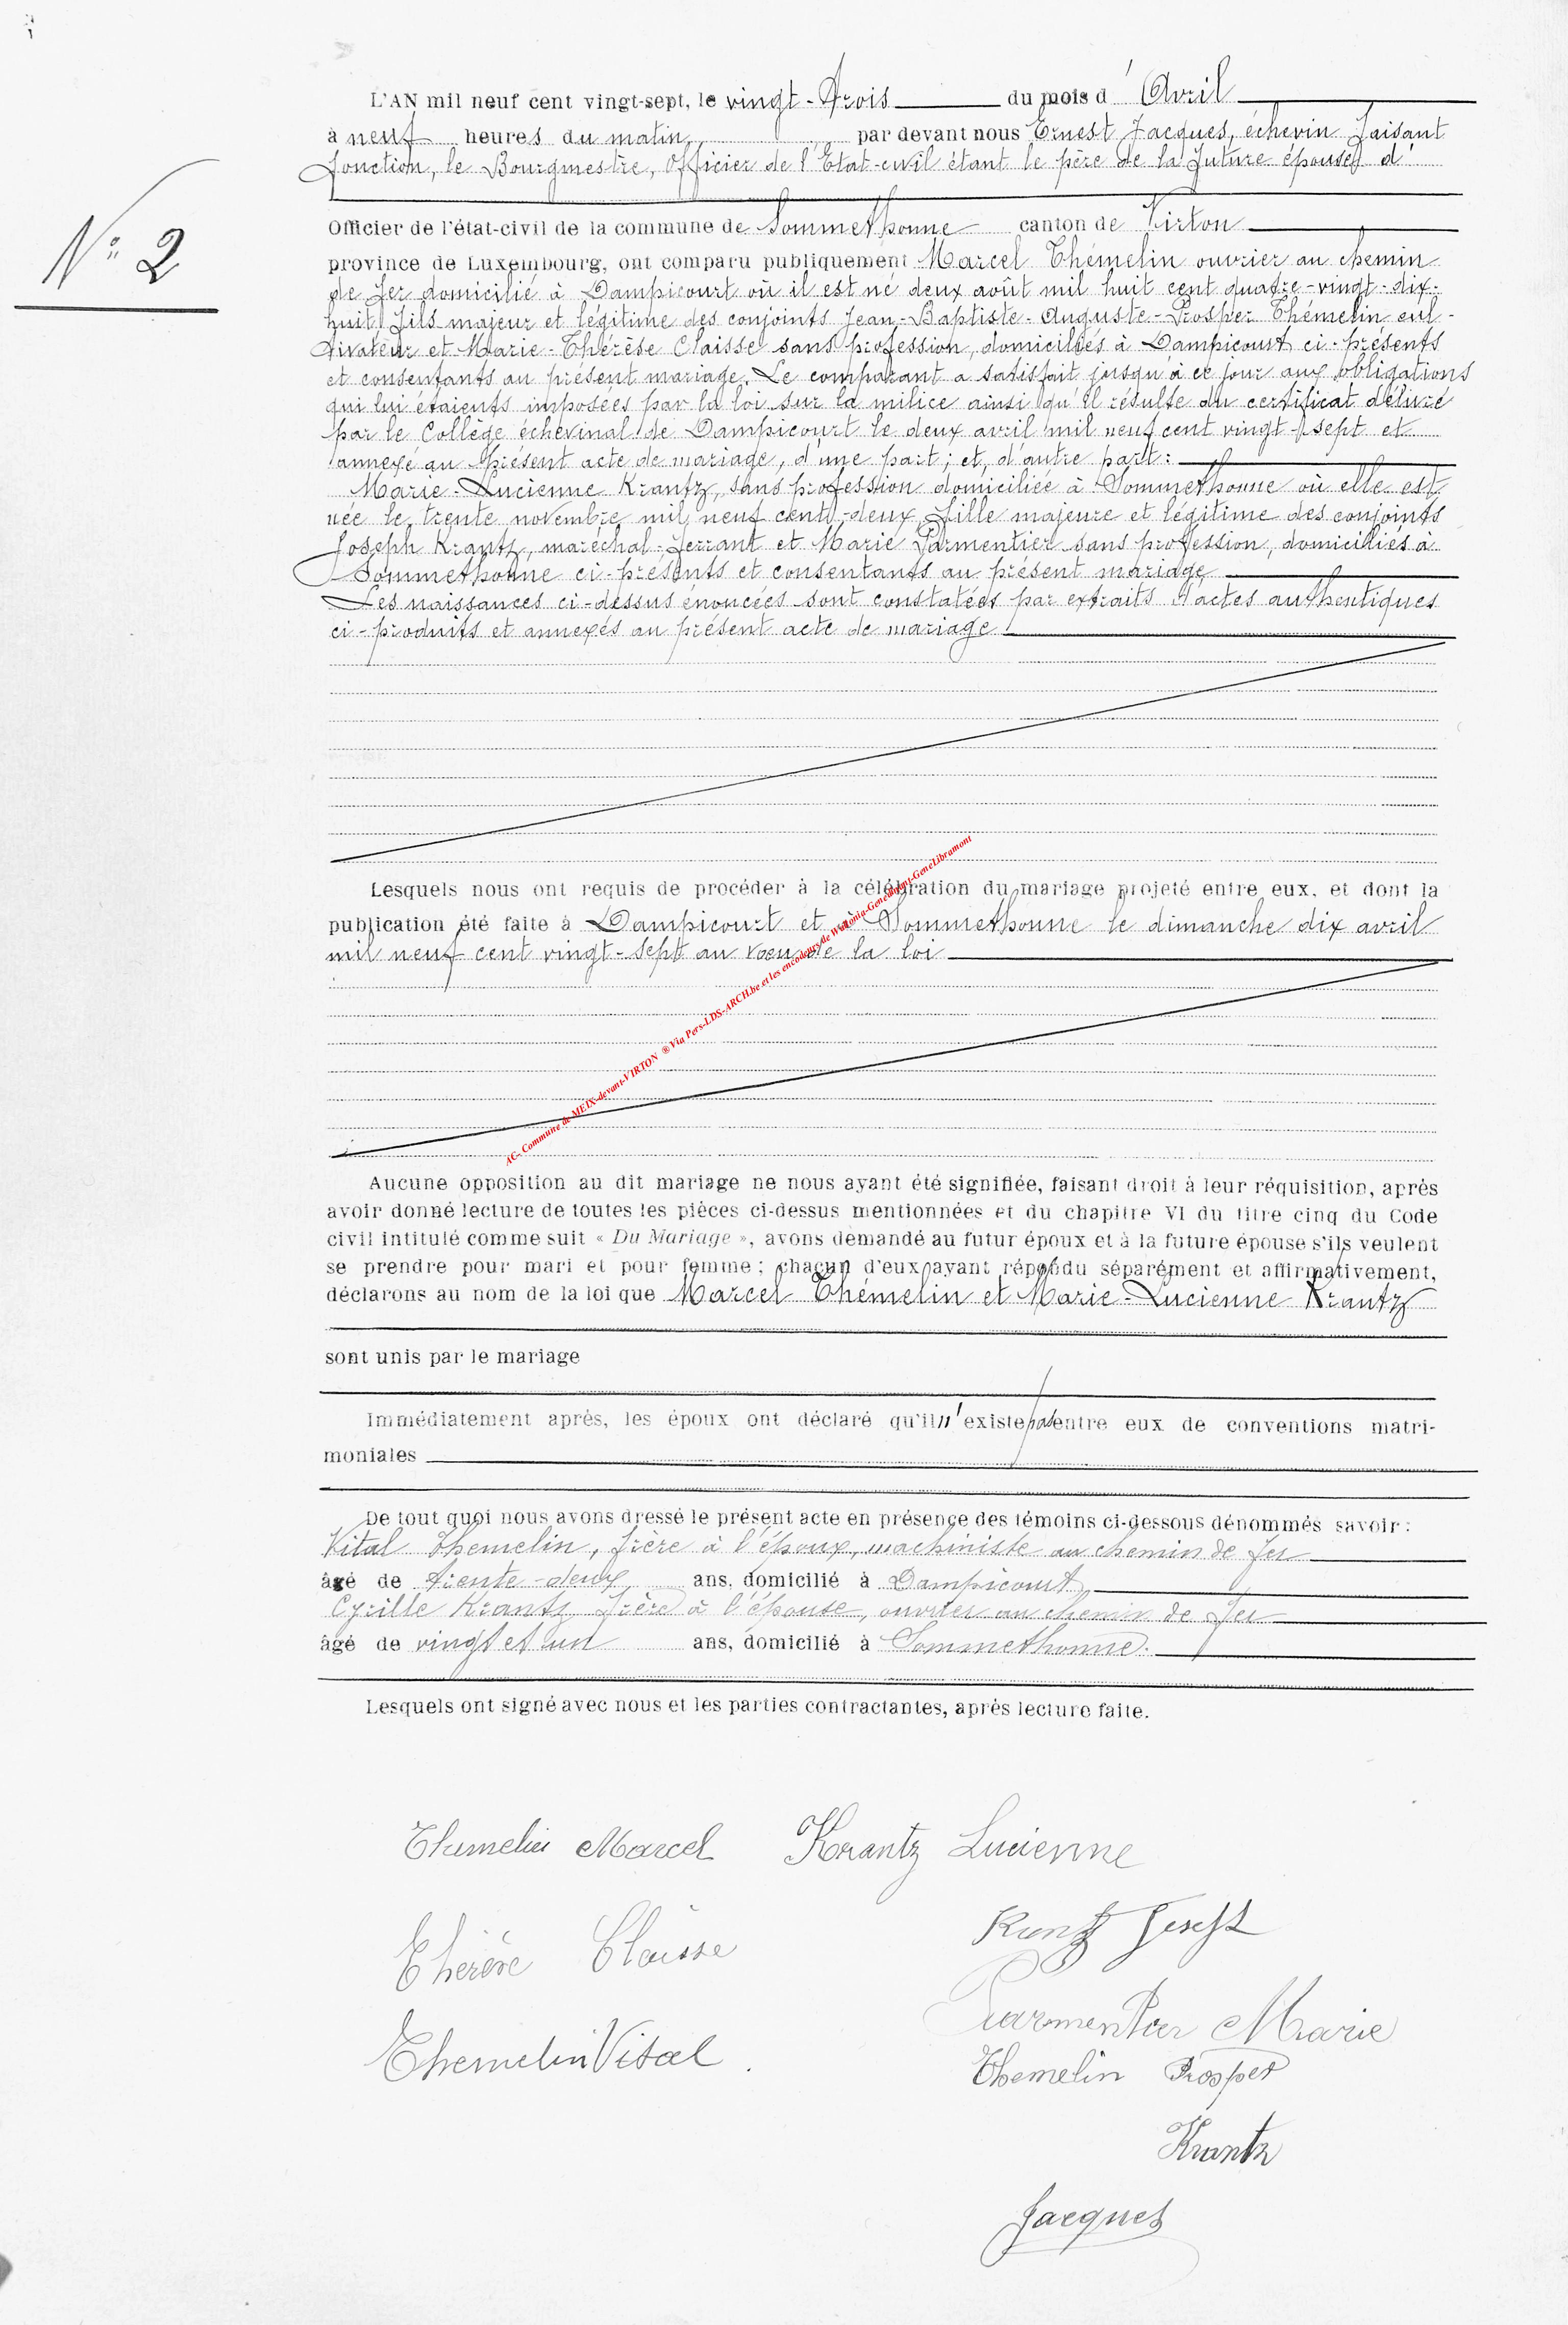 L'AN mil neuf cent vingt-sept, le vingt-trois du mois d'Avril
à neuf heures du matin, par devant nous Ernest Jacques, échevin faisant
fonction, le Bourgmestre, Officier de l'Etat-civil étant le père de la future épouse, d'
N° 2
Officier de l'état-civil de la commune de Sommethonne canton de Virton
province de Luxembourg, ont comparu publiquement Marcel Thémelin ouvrier au chemin
de fer domicilié à Dampicourt où il est né deux août mil huit cent quatre-vingt-dix-
huit, fils majeur et légitime des conjoints Jean-Baptiste-Auguste-Prosper Thémelin cul-
tivateur et Marie-Thérèse Claisse sans profession, domiciliés à Dampicourt ci-présents
et consentants au présent mariage. Le comparant a satisfait jusqu'à ce jour aux obligations
qui lui étaients imposées par la loi sur la milice ainsi qu'il résulte du certificat délivré
par le Collège échevinal de Dampicourt le deux avril mil neuf cent vingt-sept et
annexé au présent acte de mariage, d'une part; et, d'autre part:
Marie-Lucienne Krantz, sans profession domiciliée à Sommethonne où elle est
née le trente novembre mil neuf cent-deux, fille majeure et légitime des conjoints
Joseph Krantz, maréchal-ferrant et Marie Parmentier sans profession, domiciliés à
Sommethonne ci-présents et consentants au présent mariage
Les naissances ci-dessus énoncées sont constatées par extraits d'actes authentiques
ci-produits et annexés au présent acte de mariage.
Lesquels nous ont requis de procéder à la célébration du mariage projeté entre eux, et dont la
publication été faite à Dampicourt et à Sommethonne le dimanche dix avril
mil neuf cent vingt-sept au vœu de la loi
AC. Commune de MEIX-devant-VIRTON ® Via Pers-LDS-ARCH.be et les encodeurs de
Aucune opposition au dit mariage ne nous ayant été signifiée, faisant droit à leur réquisition, après
avoir donné lecture de toutes les pièces ci-dessus mentionnées et du chapitre VI du titre cinq du Code
civil intitulé comme suit « Du Mariage », avons demandé au futur époux et à la future épouse s'ils veulent
se prendre pour mari et pour femme; chacun d'eux ayant répondu séparément et affirmativement,
déclarons au nom de la loi que Marcel Thémelin et Marie-Lucienne Krantz
sont unis par le mariage
Immédiatement après, les époux ont déclaré qu'il n'existe pas entre eux de conventions matri-
moniales
De tout quoi nous avons dressé le présent acte en présence des témoins ci-dessous dénommés savoir:
Vital Themelin, frère à l'époux, machiniste au chemin de fer
âgé de trente-deux ans, domicilié à Dampicourt
Cyrille Krantz frère à l'épouse, ouvrier au chemin de fer
âgé de vingt et un ans, domicilié à Sommethonne.
Lesquels ont signé avec nous et les parties contractantes, après lecture faite.
Themelin Marcel Krantz Lucienne
Thérèse Claisse Krantz Joseph
Parmentier Marie
Themelin Vital.
Themelin Prosper
Krantz
Jacques